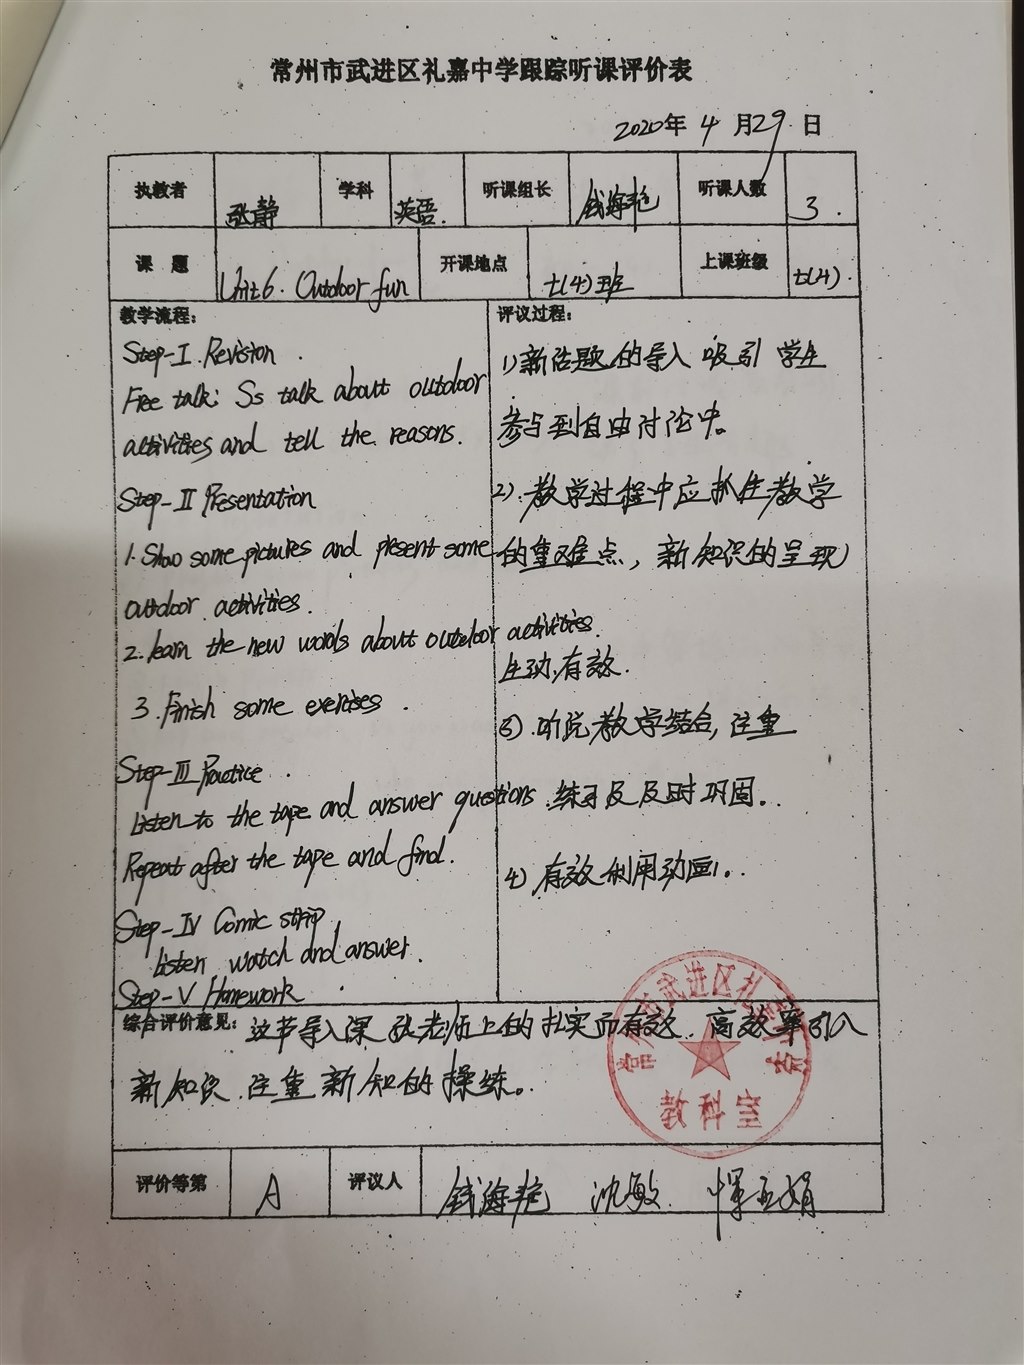 常州市武进区礼嘉中学跟踪听课评价表
2020年 4 月29 日
执教者 张静 学科 英语. 听课组长 钱海艳 听课人数 3.
课 题 Unit 6. Outdoor fun 开课地点 七(4)班 上课班级 七(4).
教学流程:
Step-I. Revision.
Free talk: Ss talk about outdoor
activities and tell the reasons.
Step-II Presentation
1. Show some pictures and present some
outdoor activities.
2. learn the new words about outdoor activities.
3. Finish some exercises.
Step-III Practice.
Listen to the tape and answer questions.
Repeat after the tape and find.
Step-IV Comic strip
Listen, watch and answer.
Step-V Homework.
评议过程:
1) 新话题的导入吸引学生
参与到自由讨论中。
2). 教学过程中应抓住教学
的重难点，新知识的呈现
生动,有效.
3). 听说教学结合, 注重
练习及及时巩固..
4) 有效利用动画..
综合评价意见: 这节导入课 张老师上的扎实而有效. 高效率引入
新知识.注重新知的操练。.
武进区礼
教科室
评价等第 A 评议人 钱海艳 沈敏. 恽玉娟